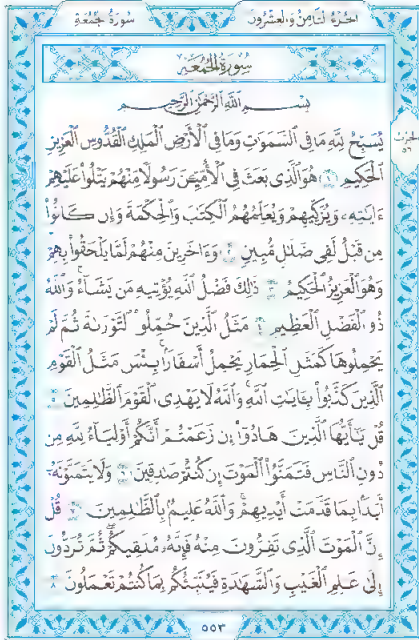 سُورَةُ جُمُعَةِ
الجُزءُ الثَّامِنُ وَالْعِشْرُونَ
سُورَةُ الْجُمُعَةِ
بِسْمِ اللَّهِ الرَّحْمَٰنِ الرَّحِيمِ
يُسَبِّحُ لِلَّهِ مَا فِي ٱلسَّمَٰوَٰتِ وَمَا فِي ٱلْأَرْضِ ٱلْمَلِكِ ٱلْقُدُّوسِ ٱلْعَزِيزِ
ٱلْحَكِيمِ ۝ هُوَ ٱلَّذِي بَعَثَ فِي ٱلْأُمِّيِّـۧنَ رَسُولًا مِّنْهُمْ يَتْلُوا۟ عَلَيْهِمْ
ءَايَٰتِهِۦ وَيُزَكِّيهِمْ وَيُعَلِّمُهُمُ ٱلْكِتَٰبَ وَٱلْحِكْمَةَ وَإِن كَانُوا۟
مِن قَبْلُ لَفِي ضَلَٰلٍ مُّبِينٍ ۝ وَءَاخَرِينَ مِنْهُمْ لَمَّا يَلْحَقُوا۟ بِهِمْ
وَهُوَ ٱلْعَزِيزُ ٱلْحَكِيمُ ۝ ذَٰلِكَ فَضْلُ ٱللَّهِ يُؤْتِيهِ مَن يَشَآءُ وَٱللَّهُ
ذُو ٱلْفَضْلِ ٱلْعَظِيمِ ۝ مَثَلُ ٱلَّذِينَ حُمِّلُوا۟ ٱلتَّوْرَىٰةَ ثُمَّ لَمْ
يَحْمِلُوهَا كَمَثَلِ ٱلْحِمَارِ يَحْمِلُ أَسْفَارًۢا بِئْسَ مَثَلُ ٱلْقَوْمِ
ٱلَّذِينَ كَذَّبُوا۟ بِـَٔايَٰتِ ٱللَّهِ وَٱللَّهُ لَا يَهْدِى ٱلْقَوْمَ ٱلظَّٰلِمِينَ ۝
قُلْ يَٰٓأَيُّهَا ٱلَّذِينَ هَادُوٓا۟ إِن زَعَمْتُمْ أَنَّكُمْ أَوْلِيَآءُ لِلَّهِ مِن
دُونِ ٱلنَّاسِ فَتَمَنَّوُا۟ ٱلْمَوْتَ إِن كُنتُمْ صَٰدِقِينَ ۝ وَلَا يَتَمَنَّوْنَهُۥٓ
أَبَدًۢا بِمَا قَدَّمَتْ أَيْدِيهِمْ وَٱللَّهُ عَلِيمٌۢ بِٱلظَّٰلِمِينَ ۝ قُلْ
إِنَّ ٱلْمَوْتَ ٱلَّذِى تَفِرُّونَ مِنْهُ فَإِنَّهُۥ مُلَٰقِيكُمْ ثُمَّ تُرَدُّونَ
إِلَىٰ عَٰلِمِ ٱلْغَيْبِ وَٱلشَّهَٰدَةِ فَيُنَبِّئُكُم بِمَا كُنتُمْ تَعْمَلُونَ ۝
٥٥٣